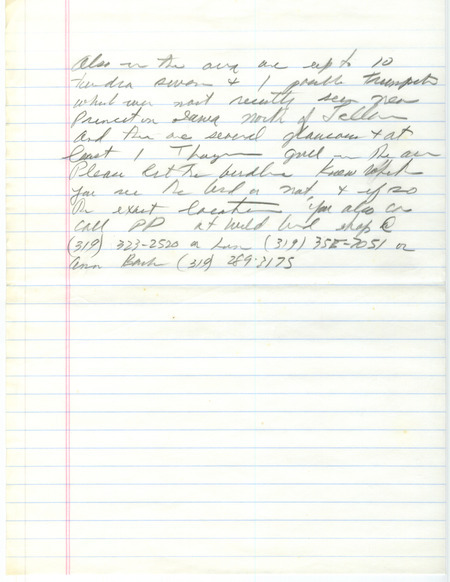 Also in the area are up to 10
tundra swan + 1 possible trumpeter
which were most recently seen near
Princeton Iowa north of
And there are several glaucous + at
least 1 Thayer gull in the area
Please let the birdline know
you see the bird or not, + if so
the exact location. You also can
call PP at wild bird shop @
(319) 323-2520 or (319) 355-7051 or
Ann Barker (319) 289-3175